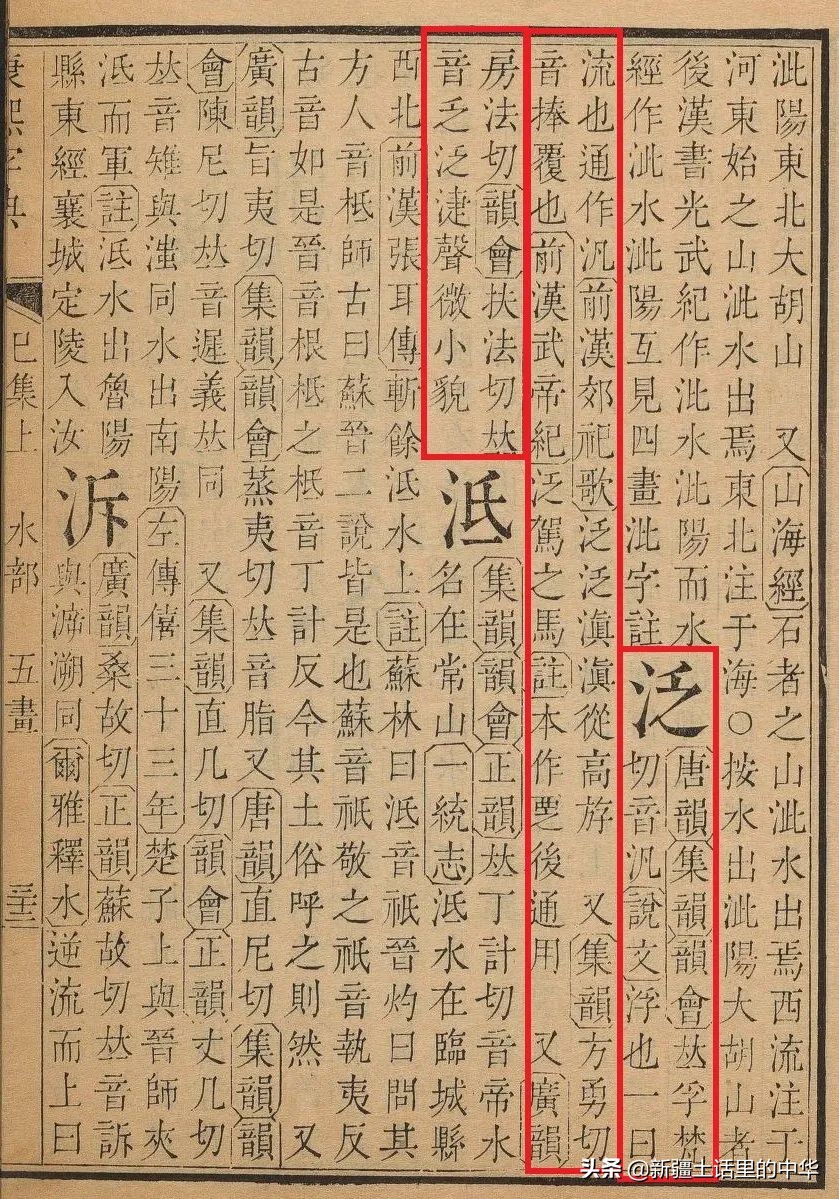 泚陽東北大胡山 又山海經石者之山泚水出焉西流注于
河東始之山泚水出焉東北注于海○按水出泚陽大胡山者
後漢書光武紀作沘水沘陽而水
經作泚水泚陽互見四畫沘字註
泛
唐韻集韻韻會𠀤孚梵
切音汎說文浮也一曰
流也通作汎前漢郊祀歌泛泛滇滇從高斿 又集韻方勇切
音捧覆也前漢武帝紀泛駕之馬註本作覂後通用 又廣韻
房法切韻會扶法切𠀤
音乏泛淁聲微小貌
泜
集韻韻會正韻𠀤丁計切音帝水
名在常山一統志泜水在臨城縣
西北前漢張耳傳斬餘泜水上註蘇林曰泜音祇晉灼曰問其
方人音柢師古曰蘇晉二說皆是也蘇音祇敬之祇音執夷反
古音如是晉音根柢之柢音丁計反今其土俗呼之則然 又
廣韻旨夷切集韻韻會蒸夷切𠀤音脂又唐韻直尼切集韻韻
會陳尼切𠀤音遲義𠀤同 又集韻直几切韻會正韻丈几切
𠀤音雉與滍同水出南陽左傳僖三十三年楚子上與晉師夾
泜而軍註泜水出魯陽
縣東經襄城定陵入汝
泝
廣韻桑故切正韻蘇故切𠀤音訴
與㴑溯同爾雅釋水逆流而上曰
康熙字典
巳集上 水部 五畫
头条 @新疆土话里的中华